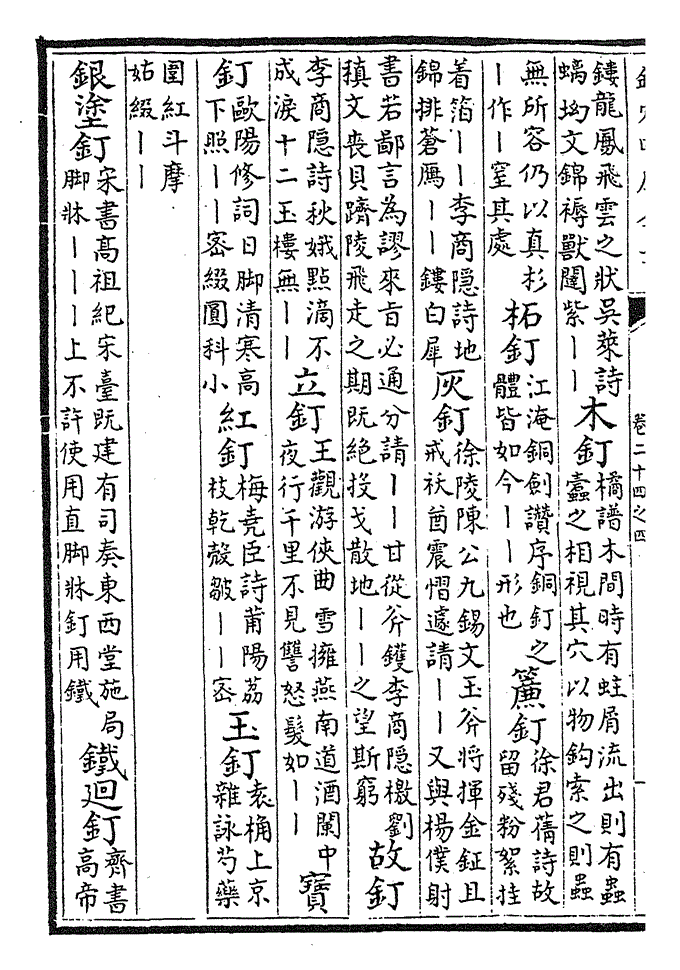 卷二十四之四
鏤龍鳳飛雲之狀吳萊詩
螭坳文錦褥獸闥紫丨丨
木釘
橘譜木間時有蛀屑流出則有蟲
蠹之相視其穴以物鈎索之則蟲
無所容仍以真杉
丨作丨窒其處
柘釘
江淹銅劍讚序銅釘之
體皆如今丨丨形也
簾釘
徐君蒨詩故
留殘粉絮挂
着箔丨丨李商隠詩地
錦排蒼鴈丨丨鏤白犀
灰釘
徐陵陳公九錫文玉斧將揮金鉦且
戒祅酋震慴遽請丨丨又與楊僕射
書若鄙言為謬來旨必通分請丨丨甘從斧鑊李商隠檄劉
稹文喪貝躋陵飛走之期既絶投戈散地丨丨之望斯窮
故釘
李商隠詩秋娥點滴不
成淚十二玉樓無丨丨
立釘
王觀游俠曲雪擁燕南道酒闌中
夜行千里不見讐怒髮如丨丨
寶
釘
歐陽修詞日脚清寒高
下照丨丨宻綴圓科小
紅釘
梅堯臣詩莆陽荔
枝乾殻皺丨丨宻
玉釘
袁桷上京
雜詠芍藥
圍紅斗摩
姑綴丨丨
銀塗釘
宋書髙祖紀宋臺既建有司奏東西堂施局
脚牀丨丨丨上不許使用直脚牀釘用鐵
鐵廻釘
齊書
高帝